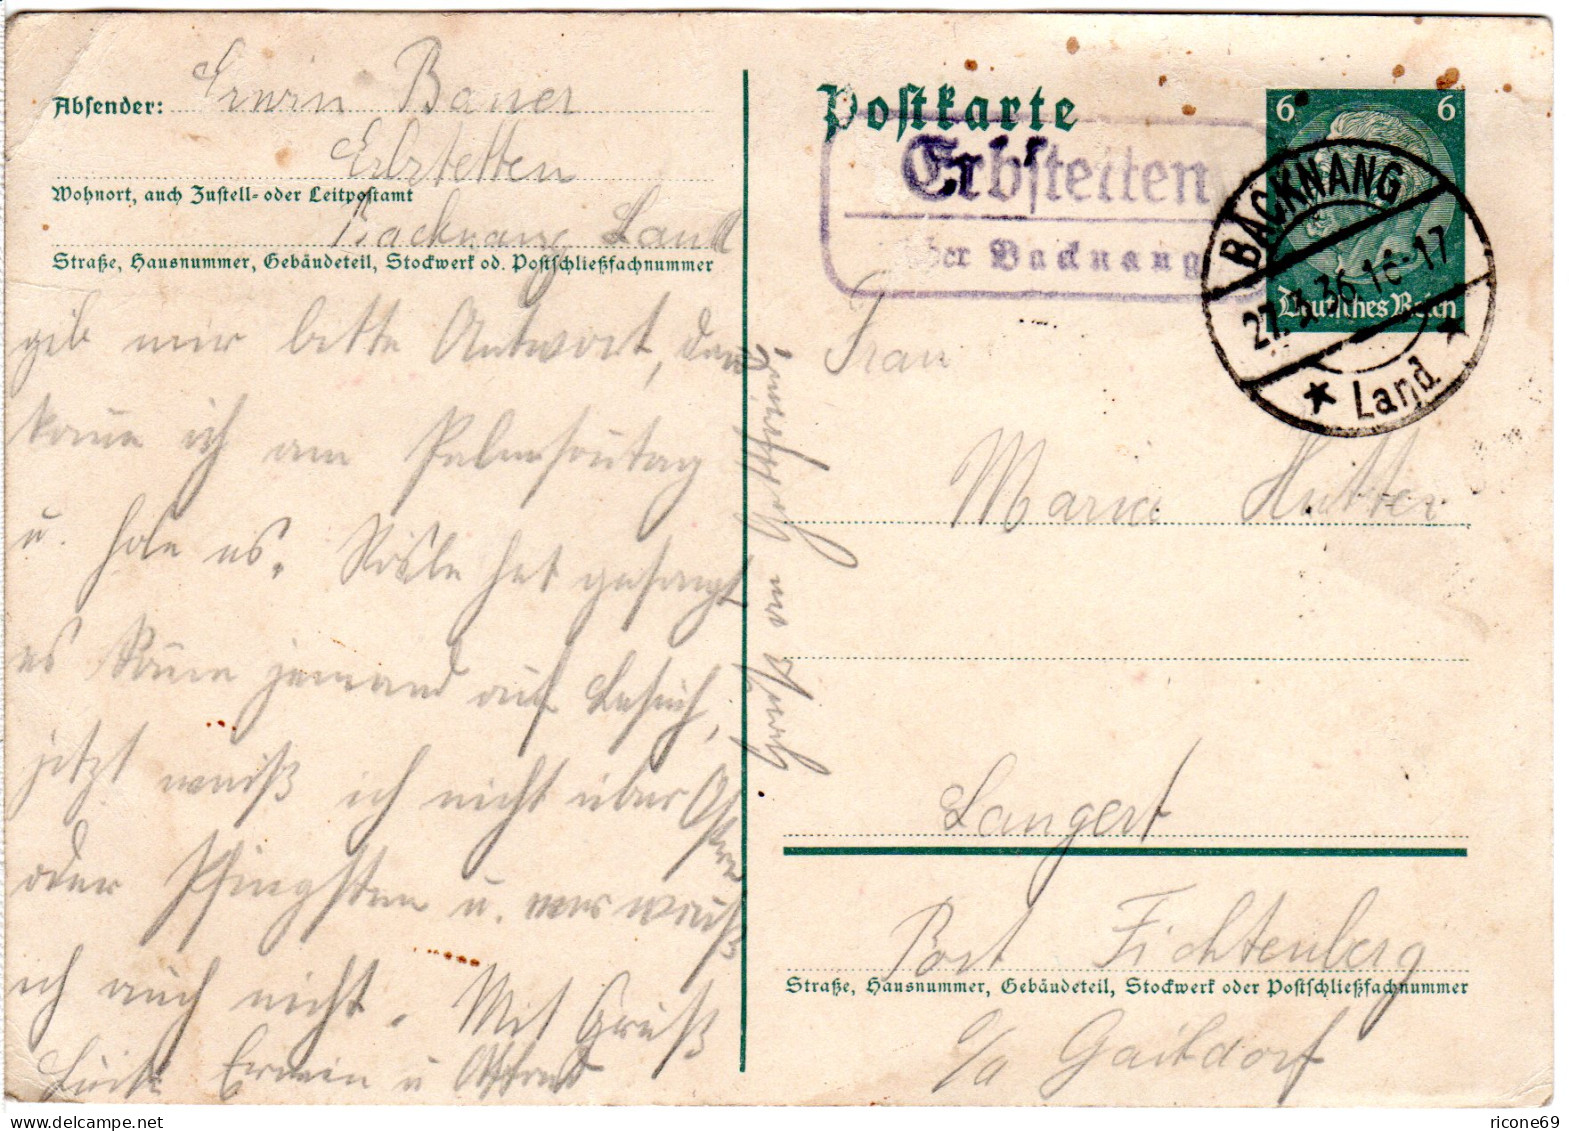 Absender: Erwin Bauer
Erbstetten
Wohnort, auch Zustell- oder Leitpostamt
Backnang Land
Straße, Hausnummer, Gebäudeteil, Stockwerk od. Postschließfachnummer
gib mir bitte Antwort, dan
kann ich am Palmsontag
u. hole es. Rösle hat gesagt
es käme jemand auf Besuch,
jetzt weiß ich nicht über Ostern
oder Pfingsten u. wer weiß
ich auch nicht. Mit Gruß
Luise Erwin u
Postkarte
Erbstetten
über Backnang
6 6
Deutsches Reich
BACKNANG
27.3.36.16-17
★ Land ★
Frau
Maria Hutter
Langert
Post Fichtenberg
Straße, Hausnummer, Gebäudeteil, Stockwerk oder Postschließfachnummer
o/a Gaildorf
ricone69